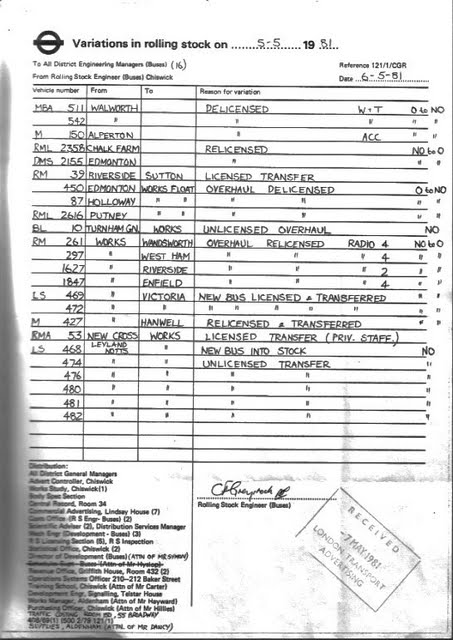 Variations in rolling stock on ........5-5......... 19 81..
To All District Engineering Managers (Buses) (16)
Reference 121/1/CGR
From Rolling Stock Engineer (Buses) Chiswick
Date 6-5-81
Vehicle number From To Reason for variation
MBA 511 WALWORTH DELICENSED W+T O to NO
542 " " " "
M 150 ALPERTON " ACC " "
RML 2358 CHALK FARM RELICENSED NO to O
DMS 2155 EDMONTON " " "
RM 39 RIVERSIDE SUTTON LICENSED TRANSFER
450 EDMONTON WORKS FLOAT OVERHAUL DELICENSED O to NO
87 HOLLOWAY " " " " " "
RML 2616 PUTNEY " " " " " "
BL 10 TURNHAM GN. WORKS UNLICENSED OVERHAUL NO
RM 261 WORKS WANDSWORTH OVERHAUL RELICENSED RADIO 4 NO to O
297 " WEST HAM " " " 4 " "
1627 " RIVERSIDE " " " 2 " "
1847 " ENFIELD " " " 4 " "
LS 469 " VICTORIA NEW BUS LICENSED & TRANSFERRED " "
472 " " " " " " " " "
M 427 " HANWELL RELICENSED & TRANSFERRED " "
RMA 53 NEW CROSS WORKS LICENSED TRANSFER (PRIV. STAFF.)
LS 468 LEYLAND NOTTS " NEW BUS INTO STOCK NO
474 " " UNLICENSED TRANSFER "
476 " " " " "
480 " " " " "
481 " " " " "
482 " " " " "
Distribution:
All District General Managers
Advert Controller, Chiswick
Works Study, Chiswick(1)
Body Spec Section
Central Record, Room 34
Commercial Advertising, Lindsay House (7)
Costs Office (R S Engr- Buses) (2)
Scientific Adviser (2), Distribution Services Manager
Mech Engr (Development - Buses) (3)
R S Licensing Section (5), R S Inspection
Statistical Office, Chiswick (2)
Director of Development (Buses) (ATTN OF MR
(Attn of Mr Hyslop)
Revenue Griffith House, Room 432 (2)
Operations Systems Officer 210-212 Baker Street
Training School, Chiswick (Attn of Mr Carter)
Development Engr, Signalling, Telstar House
Works Manager, Aldenham (Attn of Mr Hayward)
Purchasing Officer, Chiswick (Attn of Mr Hillies)
TRAFFIC ROOM 55 BROADWAY
ALDENHAM (ATTN. OF MR DANCY)
Rolling Stock Engineer (Buses)
RECEIVED
-7 MAY 1981
LONDON TRANSPORT
ADVERTISING